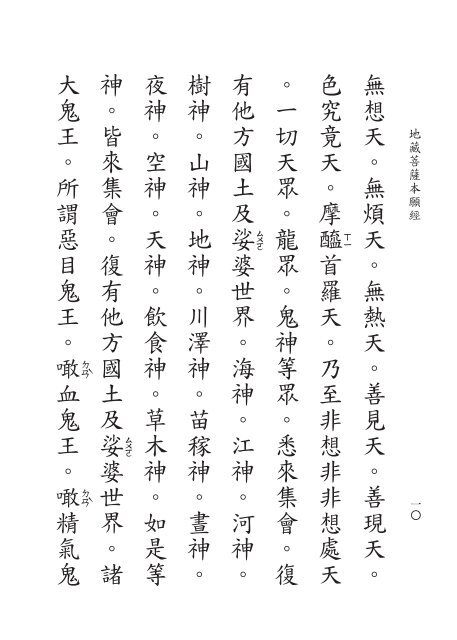 地藏菩薩本願經
一〇
無想天。無煩天。無熱天。善見天。善現天。
色究竟天。摩醯ㄒㄧ首羅天。乃至非想非非想處天
。一切天眾。龍眾。鬼神等眾。悉來集會。復
有他方國土及娑ㄙㄨㄛ婆世界。海神。江神。河神。
樹神。山神。地神。川澤神。苗稼神。晝神。
夜神。空神。天神。飲食神。草木神。如是等
神。皆來集會。復有他方國土及娑ㄙㄨㄛ婆世界。諸
大鬼王。所謂惡目鬼王。噉ㄉㄢˋ血鬼王。噉ㄉㄢˋ精氣鬼